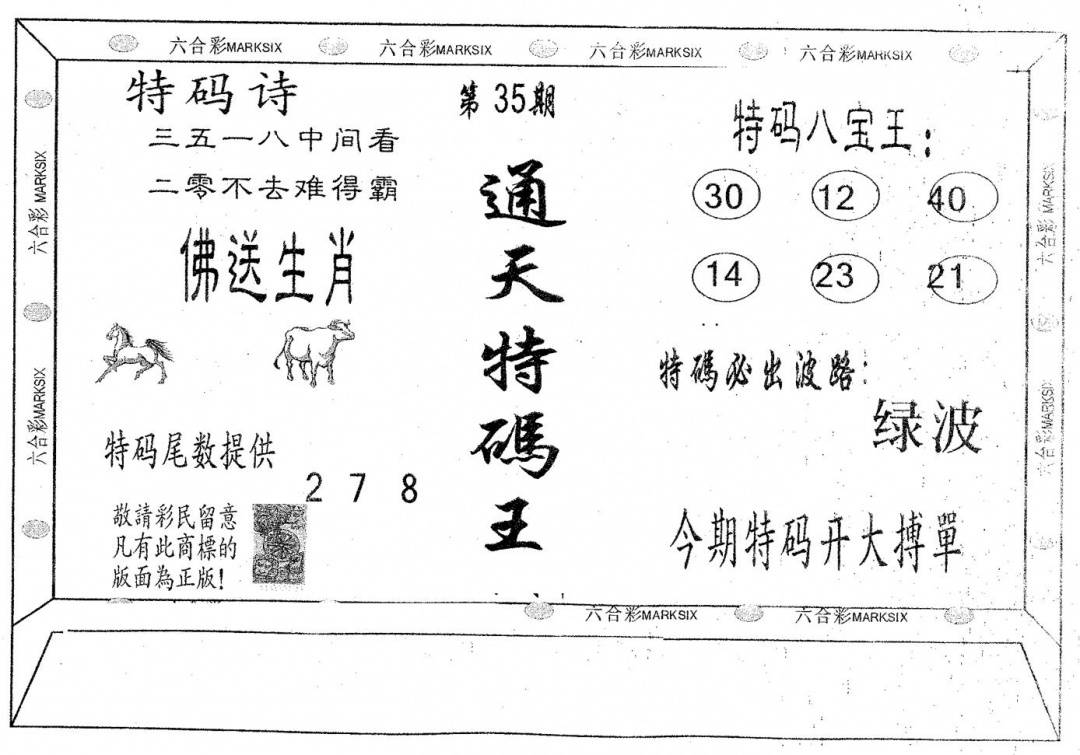 六合彩MARKSIX 六合彩MARKSIX 六合彩MARKSIX 六合彩MARKSIX
六合彩 MARKSIX
六合彩MARKSIX
特码诗
三五一八中间看
二零不去难得霸
佛送生肖
特码尾数提供
2 7 8
敬請彩民留意
凡有此商標的
版面為正版!
第35期
通天特碼王
特码八宝王:
30 12 40
14 23 21
特碼必出波路:
绿波
今期特码开大搏單
六合彩 MARKSIX
六合彩MARKSIX
六合彩MARKSIX 六合彩MARKSIX